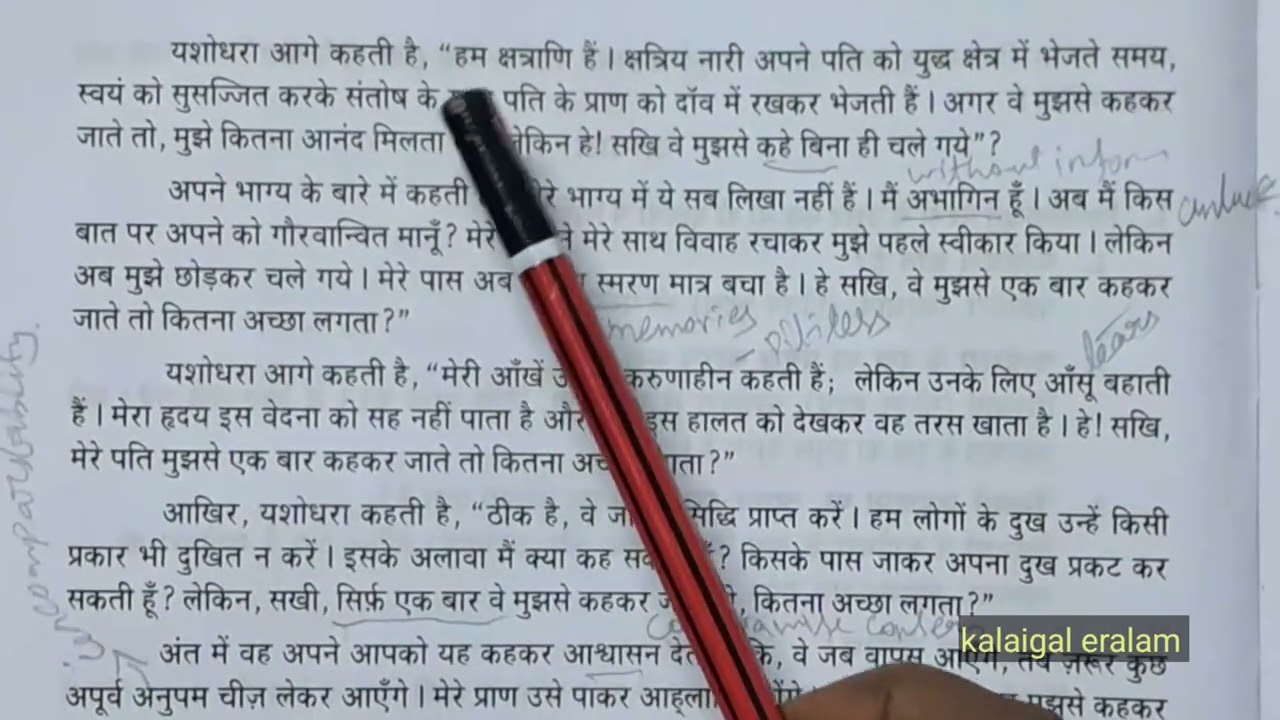 यशोधरा आगे कहती है, “हम क्षत्राणि हैं । क्षत्रिय नारी अपने पति को युद्ध क्षेत्र में भेजते समय,
स्वयं को सुसज्जित करके संतोष के पति के प्राण को दाँव में रखकर भेजती हैं । अगर वे मुझसे कहकर
जाते तो, मुझे कितना आनंद मिलता लेकिन हे! सखि वे मुझसे कहे बिना ही चले गये”?
without inform
अपने भाग्य के बारे में कहती भाग्य में ये सब लिखा नहीं हैं । मैं अभागिन हूँ । अब मैं किस
बात पर अपने को गौरवान्वित मानूँ? मेरे मेरे साथ विवाह रचाकर मुझे पहले स्वीकार किया । लेकिन
अब मुझे छोड़कर चले गये । मेरे पास अब स्मरण मात्र बचा है । हे सखि, वे मुझसे एक बार कहकर
जाते तो कितना अच्छा लगता?”
memories
pitiless
tears
यशोधरा आगे कहती है, “मेरी आँखें करुणाहीन कहती हैं; लेकिन उनके लिए आँसू बहाती
हैं । मेरा हृदय इस वेदना को सह नहीं पाता है और इस हालत को देखकर वह तरस खाता है । हे! सखि,
मेरे पति मुझसे एक बार कहकर जाते तो कितना
आखिर, यशोधरा कहती है, “ठीक है, वे सिद्धि प्राप्त करें । हम लोगों के दुख उन्हें किसी
प्रकार भी दुखित न करें । इसके अलावा मैं क्या कह ? किसके पास जाकर अपना दुख प्रकट कर
सकती हूँ? लेकिन, सखी, सिर्फ़ एक बार वे मुझसे कहकर कितना अच्छा लगता?”
kalaigal eralam
अंत में वह अपने आपको यह कहकर आश्वासन कि, वे जब वापस कुछ
अपूर्व अनुपम चीज़ लेकर आएँगे । मेरे प्राण उसे पाकर मुझसे कहकर